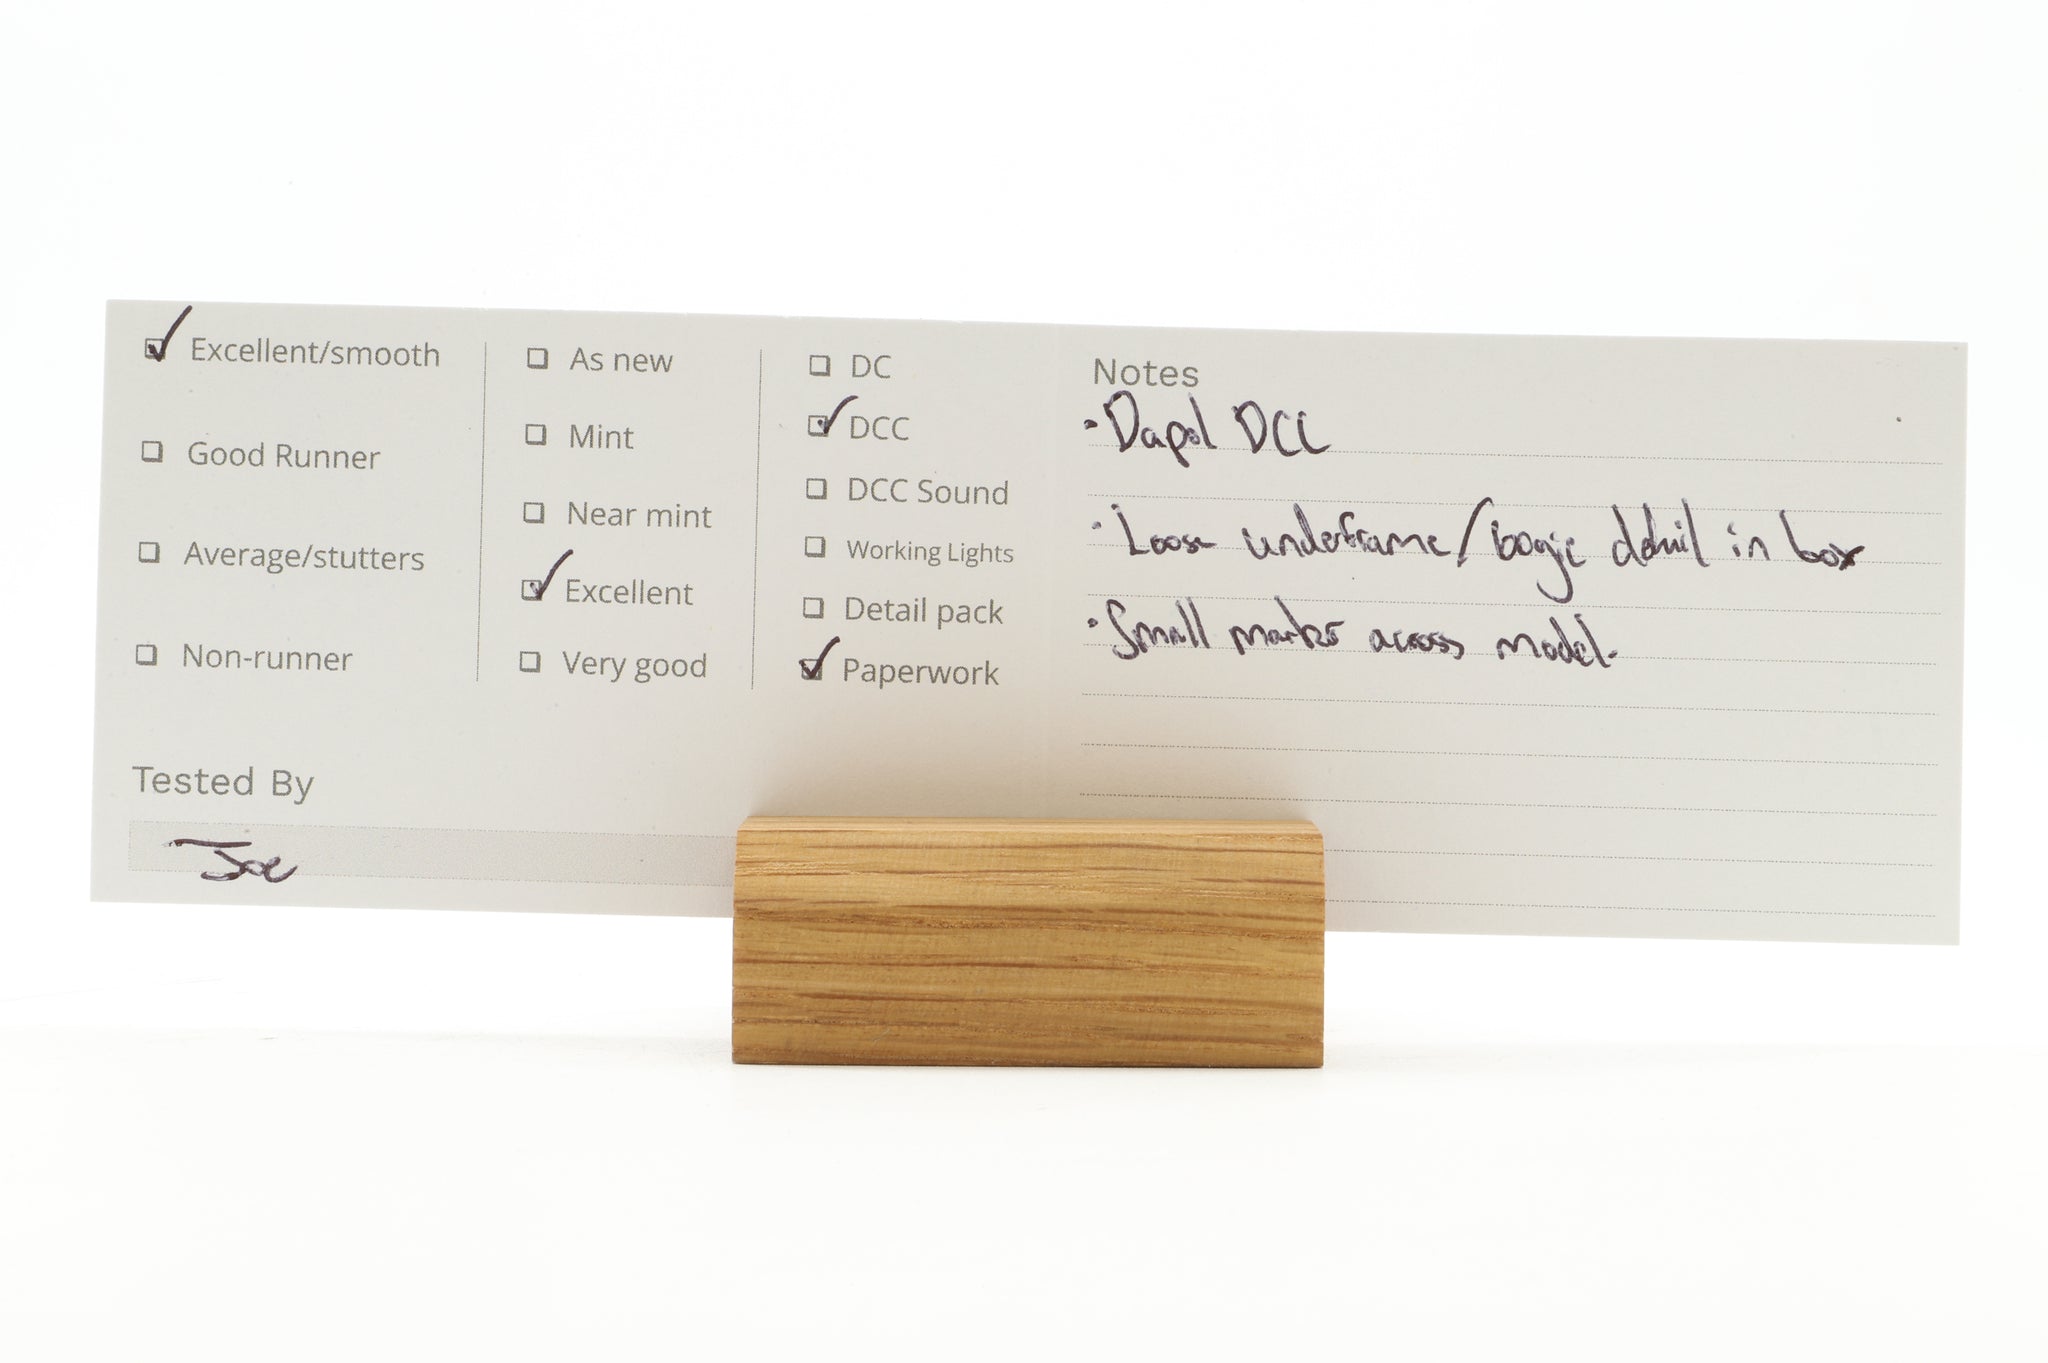 Excellent/smooth
Good Runner
Average/stutters
Non-runner
As new
Mint
Near mint
Excellent
Very good
DC
DCC
DCC Sound
Working Lights
Detail pack
Paperwork
Tested By
Joe
Notes
• Dapol DCC
• Loose underframe/bogie detail in box
• Small marks across model.